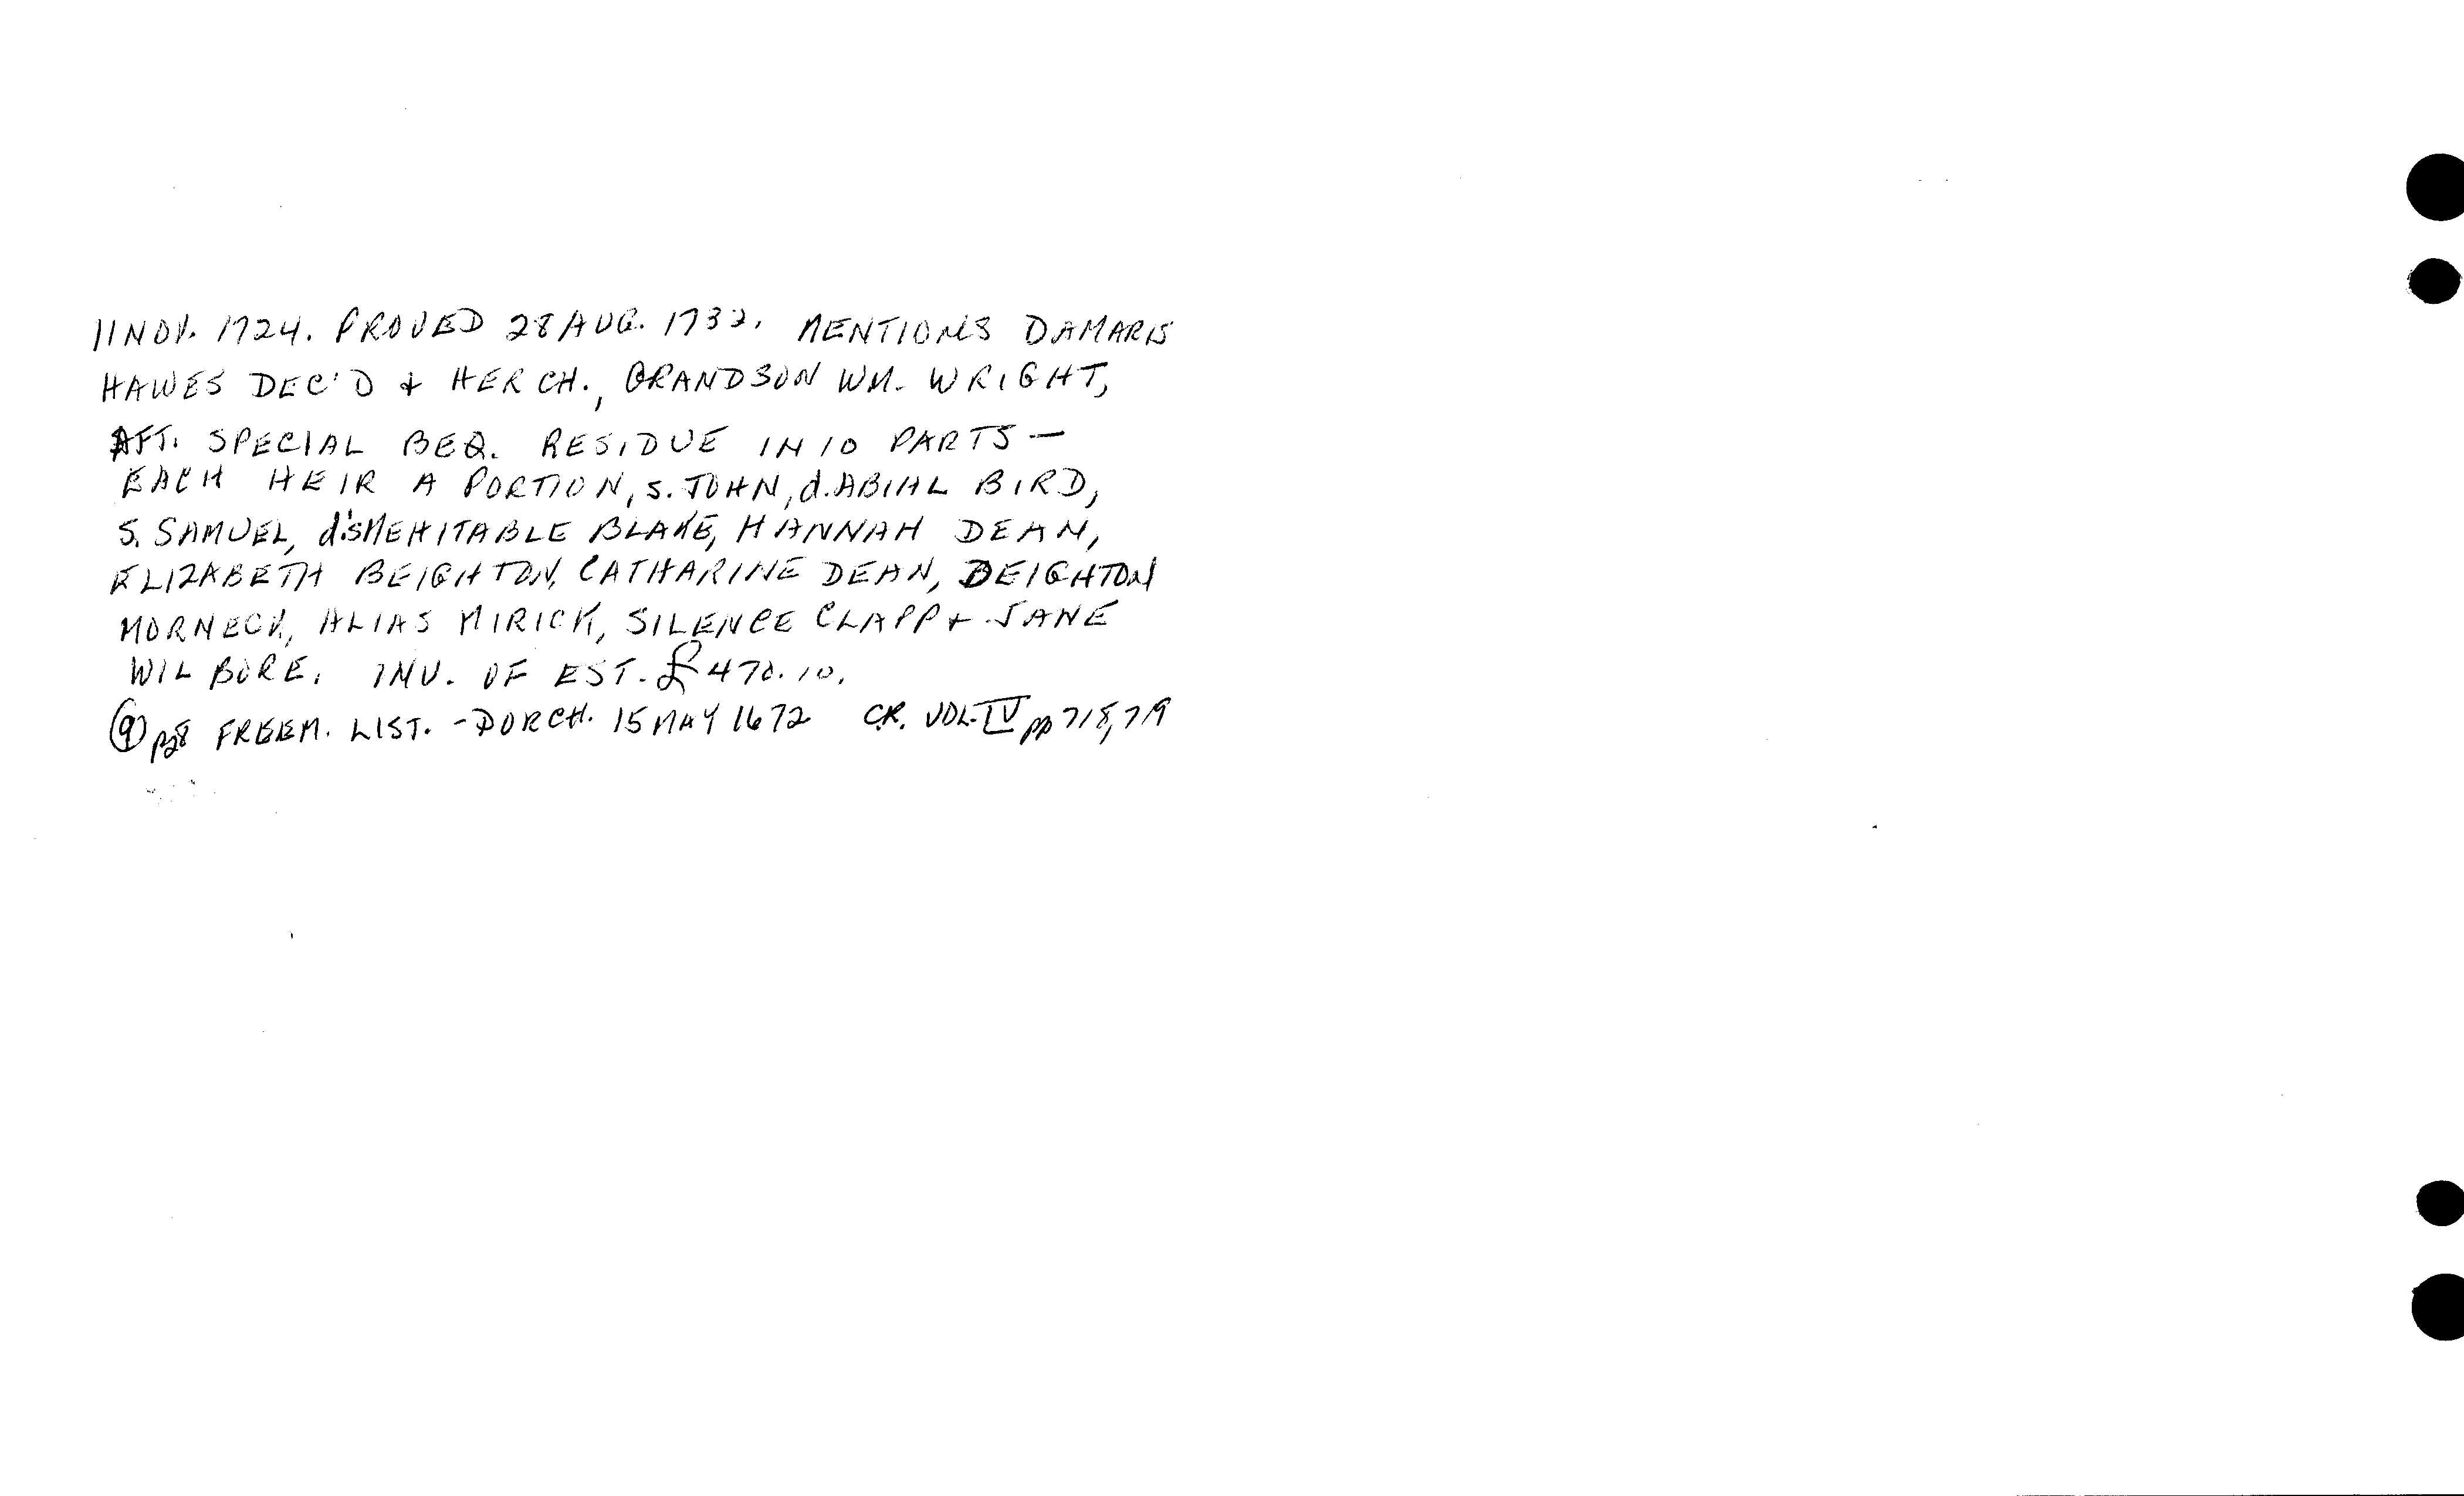 11 NOV. 1724. PROVED 28 AUG. 1732. MENTIONS DAMARIS
HAWES DEC'D + HER CH., GRANDSON WM. WRIGHT,
AFT. SPECIAL BEQ. RESIDUE IN 10 PARTS —
EACH HEIR A PORTION, S. JOHN, d. ABIAL BIRD,
S. SAMUEL, d's MEHITABLE BLAKE, HANNAH DEAN,
ELIZABETH BEIGHTON, CATHARINE DEAN, DEIGHTON
MORNECK, ALIAS MIRICK, SILENCE CLAPP + JANE
WILBORE. INV. OF EST. £470.10.
⑨ p28 FREEM. LIST. - DORCH. 15 MAY 1672 C.R. VOL. IV pp 718, 719